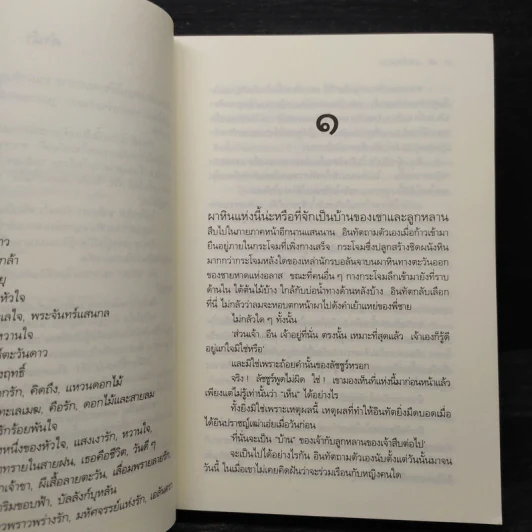 าว
กล้า
ผู
หัวใจ
แลใจ, พระจันทร์แสนกล
หวานใจ
ตะวันดาว
งฤทธิ์
กรัก, คิดถึง, แหวนดอกไม้
ทะเลเมฆ, คือรัก, ดอกไม้และสายลม
รักร้อยพันใจ
หนึ่งของหัวใจ, แสงเงารัก, หวานใจ,
ทรายในสายฝน, เธอคือชีวิต, วันดี ๆ
เจ้าขา, ผีเสื้อลายตะวัน, เลื่อมพรายลายรัก,
ริมขอบฟ้า, บัลลังก์บุหลัน
พราวพร่างรัก, มหัศจรรย์แห่งรัก,
๑
ผาหินแห่งนี้น่ะหรือที่จักเป็นบ้านของเขาและลูกหลาน
สืบไปในภายภาคหน้าอีกนานแสนนาน อินทัตถามตัวเองเมื่อก้าวเข้ามา
ยืนอยู่ภายในกระโจมที่เพิ่งกางเสร็จ กระโจมซึ่งปลูกสร้างชิดผนังหิน
มากกว่ากระโจมหลังใดของเหล่านักรบอลันจาบนผาหินทางตะวันออก
ของชายหาดแห่งอลาส ขณะที่คนอื่น ๆ กางกระโจมลึกเข้ามายังที่ราบ
ด้านใน ใต้ต้นไม้บ้าง ใกล้กับบ่อน้ำทางด้านหลังบ้าง อินทัตกลับเลือก
ที่นี่ ไม่กลัวว่าลมจะหอบตกหน้าผาไปดังคำเย้าแหย่ของพี่ชาย
ไม่กลัวใด ๆ ทั้งนั้น
'ส่วนเจ้า...อิน เจ้าอยู่ที่นั่น ตรงนั้น เหมาะที่สุดแล้ว เจ้าเองก็รู้ดี
อยู่แก่ใจมิใช่หรือ'
และมิใช่เพราะถ้อยคำนั้นของลัชชูร์หรอก
จริง! ลัชชูร์พูดไม่ผิด ใช่! เขามองเห็นที่แห่งนี้มาก่อนหน้าแล้ว
เพียงแต่ไม่รู้เท่านั้นว่า "เห็น" ได้อย่างไร
ทั้งยิ่งมิใช่เพราะเหตุผลนี้ เหตุผลที่ทำให้อินทัตยิ่งมืดบอดเมื่อ
ได้ยินปราชญ์เฒ่าเอ่ยเมื่อวันก่อน
'ที่นั่นจะเป็น "บ้าน" ของเจ้ากับลูกหลานของเจ้าสืบต่อไป'
จะเป็นไปได้อย่างไรกัน อินทัตถามตัวเองนับตั้งแต่วันนั้นมาจน
วันนี้ ในเมื่อเขาไม่เคยคิดฝันว่าจะร่วมเรือนกับหญิงคนใด